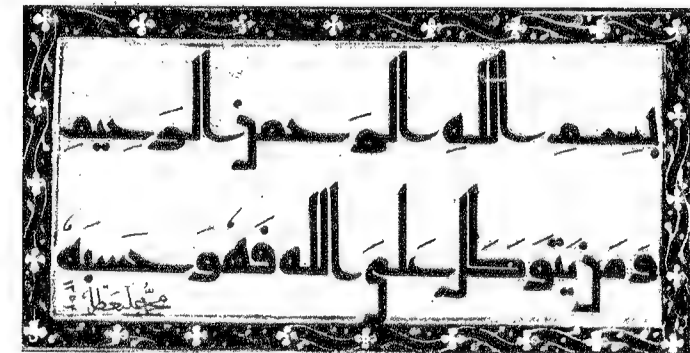 بِسمِ اللهِ الرَحمنِ الرَحِيمِ
وَمَن يَتَوَكَل عَلَى الله فَهُوَ حَسبُهُ